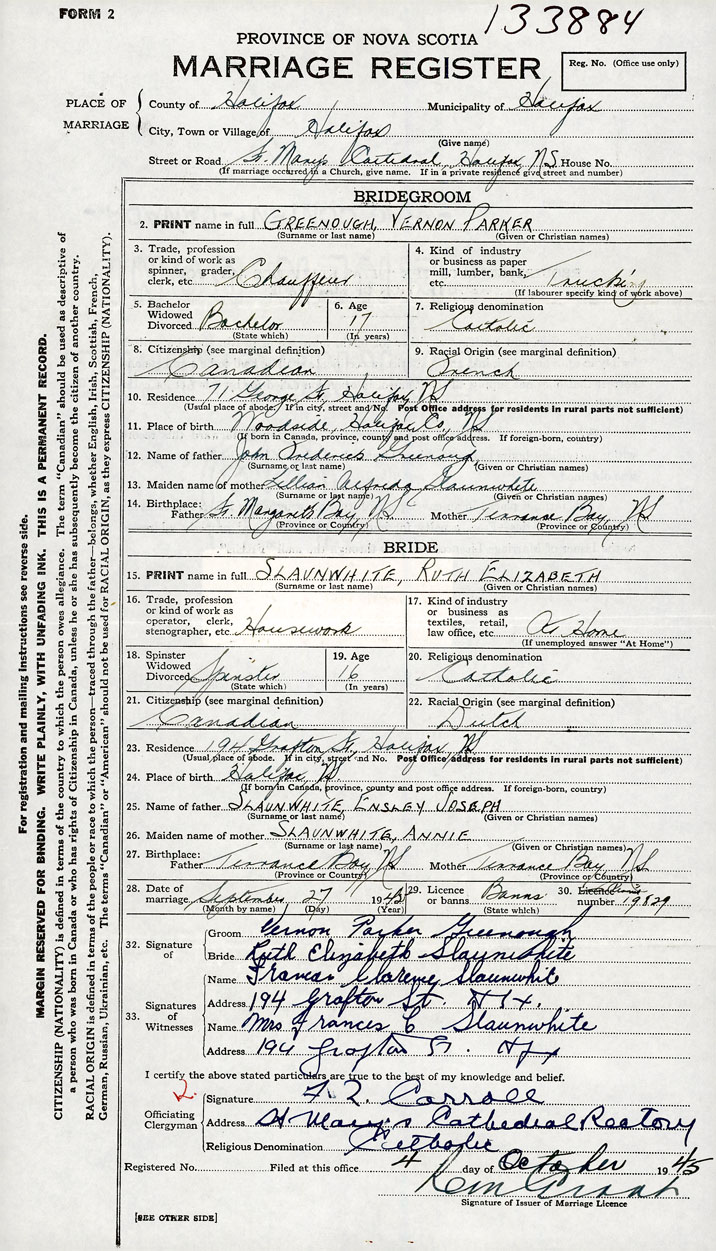 FORM 2
133884
PROVINCE OF NOVA SCOTIA
MARRIAGE REGISTER
Reg. No. (Office use only)
PLACE OF MARRIAGE
County of Halifax Municipality of Halifax
City, Town or Village of Halifax
(Give name)
Street or Road St. Mary's Cathedral, Halifax NS House No.
(If marriage occurred in a Church, give name. If in a private residence give street and number)
BRIDEGROOM
2. PRINT name in full GREENOUGH, VERNON PARKER
(Surname or last name) (Given or Christian names)
3. Trade, profession or kind of work as spinner, grader, clerk, etc Chauffeur
4. Kind of industry or business as paper mill, lumber, bank, etc. Trucking
(If labourer specify kind of work above)
5. Bachelor Widowed Divorced Bachelor
(State which)
6. Age 17
(In years)
7. Religious denomination Catholic
8. Citizenship (see marginal definition) Canadian
9. Racial Origin (see marginal definition) French
10. Residence 71 George St, Halifax NS
(Usual place of abode. If in city, street and No. Post Office address for residents in rural parts not sufficient)
11. Place of birth Woodside, Halifax Co, NS
(If born in Canada, province, county and post office address. If foreign-born, country)
12. Name of father John Frederick Greenough
(Surname or last name) (Given or Christian names)
13. Maiden name of mother Lillian Alfreda Slaunwhite
(Surname or last name) (Given or Christian names)
14. Birthplace: Father St. Margarets Bay, NS Mother Terrance Bay, NS
(Province or Country) (Province or Country)
BRIDE
15. PRINT name in full SLAUNWHITE, RUTH ELIZABETH
(Surname or last name) (Given or Christian names)
16. Trade, profession or kind of work as operator, clerk, stenographer, etc Housework
17. Kind of industry or business as textiles, retail, law office, etc At Home
(If unemployed answer "At Home")
18. Spinster Widowed Divorced Spinster
(State which)
19. Age 16
(In years)
20. Religious denomination Catholic
21. Citizenship (see marginal definition) Canadian
22. Racial Origin (see marginal definition) Dutch
23. Residence 194 Grafton St, Halifax, NS
(Usual place of abode. If in city, street and No. Post Office address for residents in rural parts not sufficient)
24. Place of birth Halifax, NS
(If born in Canada, province, county and post office address. If foreign-born, country)
25. Name of father SLAUNWHITE, ENSLEY JOSEPH
(Surname or last name) (Given or Christian names)
26. Maiden name of mother SLAUNWHITE, ANNIE
(Surname or last name) (Given or Christian names)
27. Birthplace: Father Terrance Bay, NS Mother Terrance Bay, NS
(Province or Country) (Province or Country)
28. Date of marriage September 27 1945
(Month by name) (Day) (Year)
29. Licence or banns Banns
(State which)
30. Licence number 19829
32. Signature of
Groom Vernon Parker Greenough
Bride Ruth Elizabeth Slaunwhite
33. Signatures of Witnesses
Name Slaunwhit
Address 194 Grafton St. Hfx.
Name Mrs Frances E Slaunwhite
Address 194 Grafton St. Hfx
I certify the above stated particulars are true to the best of my knowledge and belief.
2.
Officiating Clergyman
Signature Carroll
Address St Mary's Cathedral Rectory
Religious Denomination Catholic
Registered No. Filed at this office 4 day of October 1945
Grant
Signature of Issuer of Marriage Licence
[SEE OTHER SIDE]
For registration and mailing instructions see reverse side.
MARGIN RESERVED FOR BINDING. WRITE PLAINLY, WITH UNFADING INK. THIS IS A PERMANENT RECORD.
CITIZENSHIP (NATIONALITY) is defined in terms of the country to which the person owes allegiance. The term "Canadian" should be used as descriptive of
a person who was born in Canada or who has rights of Citizenship in Canada, unless he or she has subsequently become the citizen of another country.
RACIAL ORIGIN is defined in terms of the people or race to which the person—traced through the father—belongs, whether English, Irish, Scottish, French,
German, Russian, Ukrainian, etc. The terms "Canadian" or "American" should not be used for RACIAL ORIGIN, as they express CITIZENSHIP (NATIONALITY).